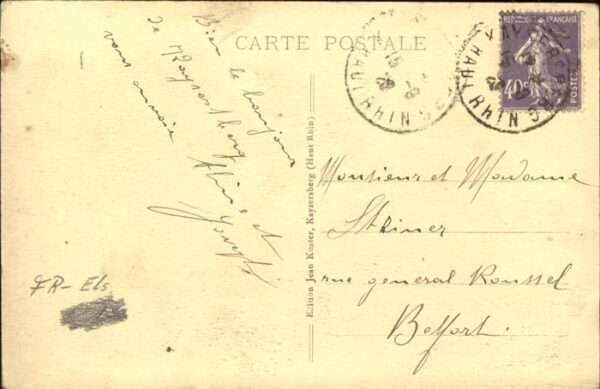 CARTE POSTALE
RÉPUBLIQUE FRANÇAISE
40c
POSTES
HAUT RHIN
HAUT RHIN
Bien le bonjour
de Kaysersberg
vous envoie
et
Joseph
Edition Jean Koster, Kaysersberg (Haut Rhin)
Monsieur et Madame
Steiner
rue général Roussel
Belfort.
FR - Els